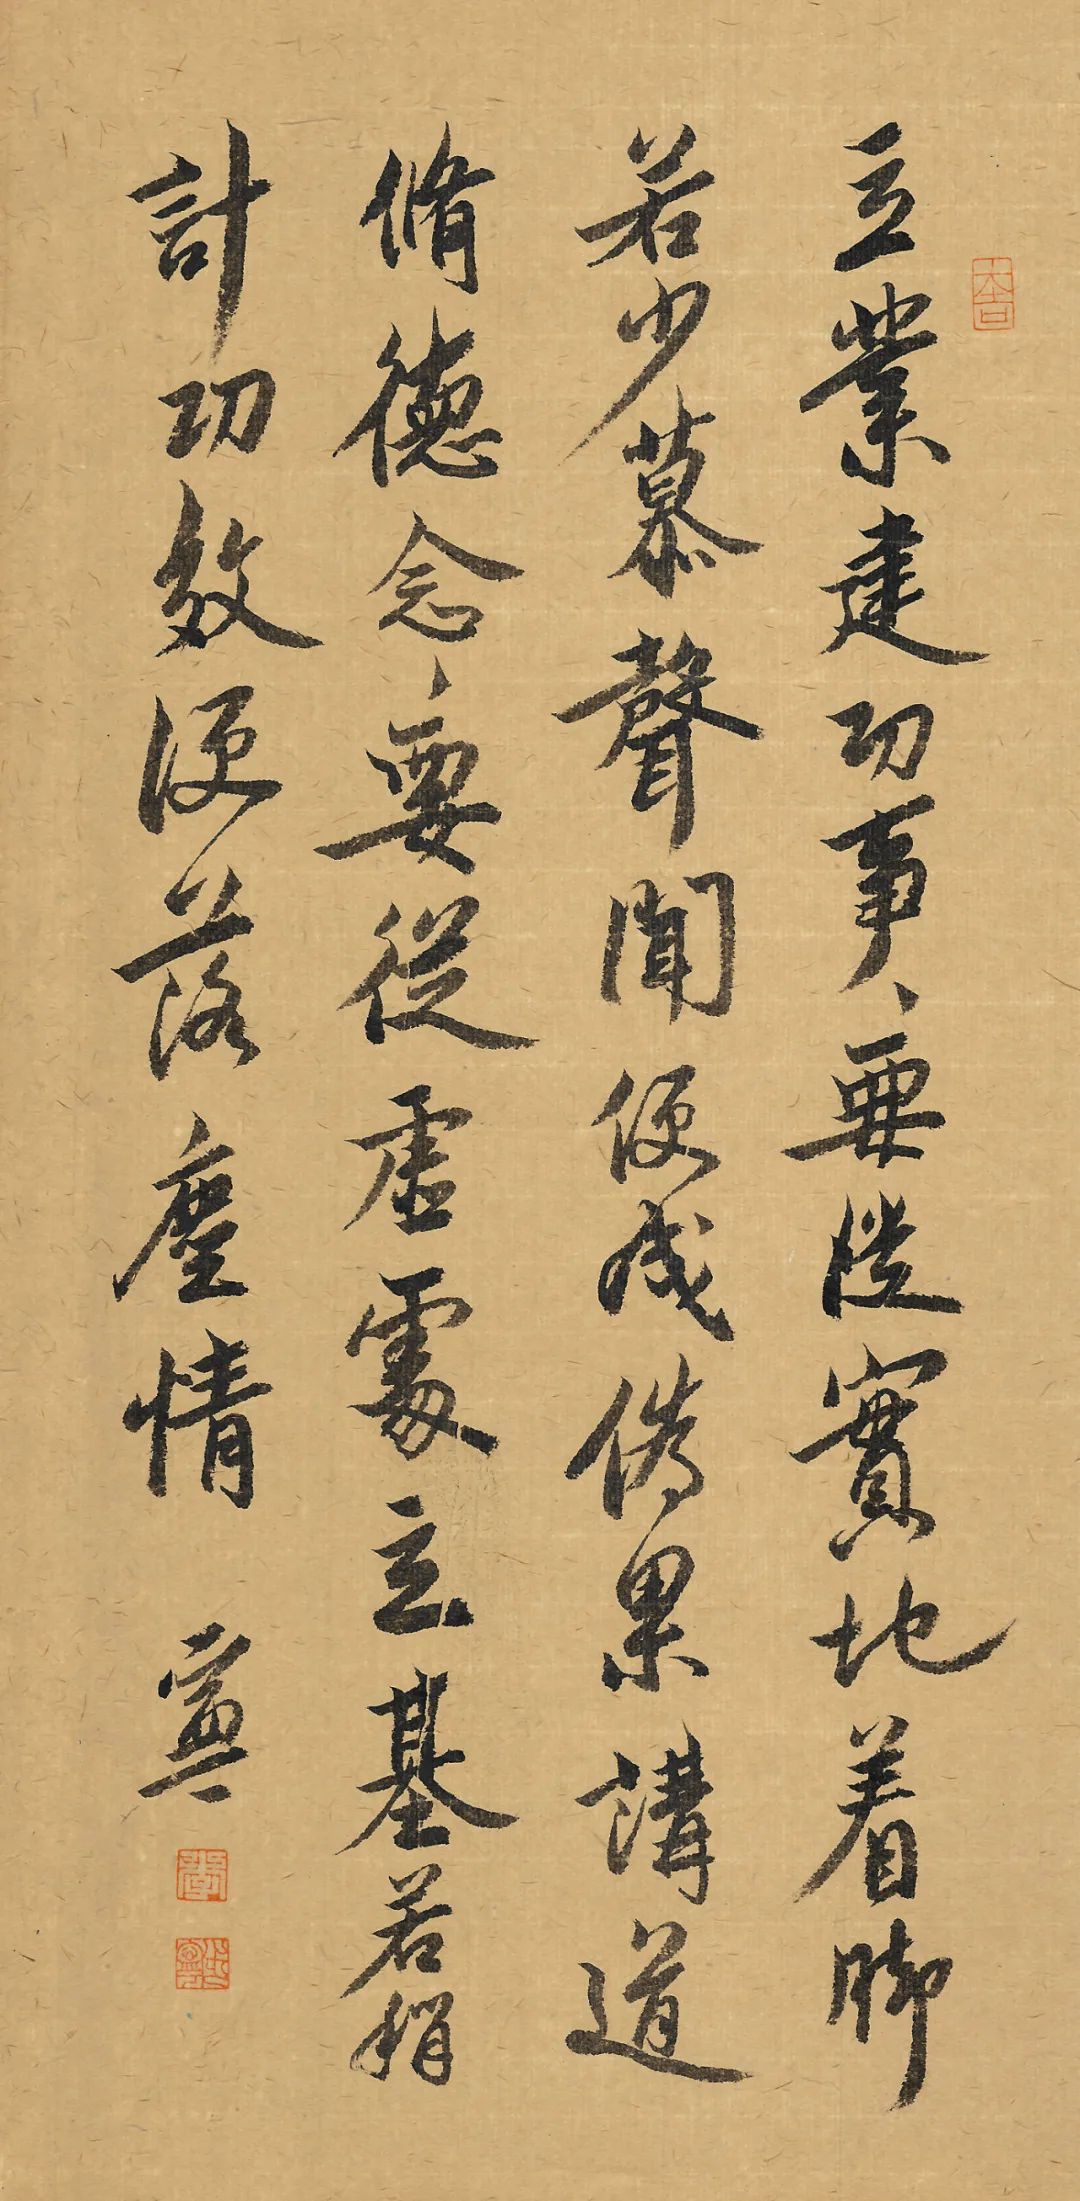 立業建功事〻要從實地着脚
若少慕聲聞便成偽果講道
脩德念〻要從虛處立基若稍
計功效便落塵情 寧
大吉